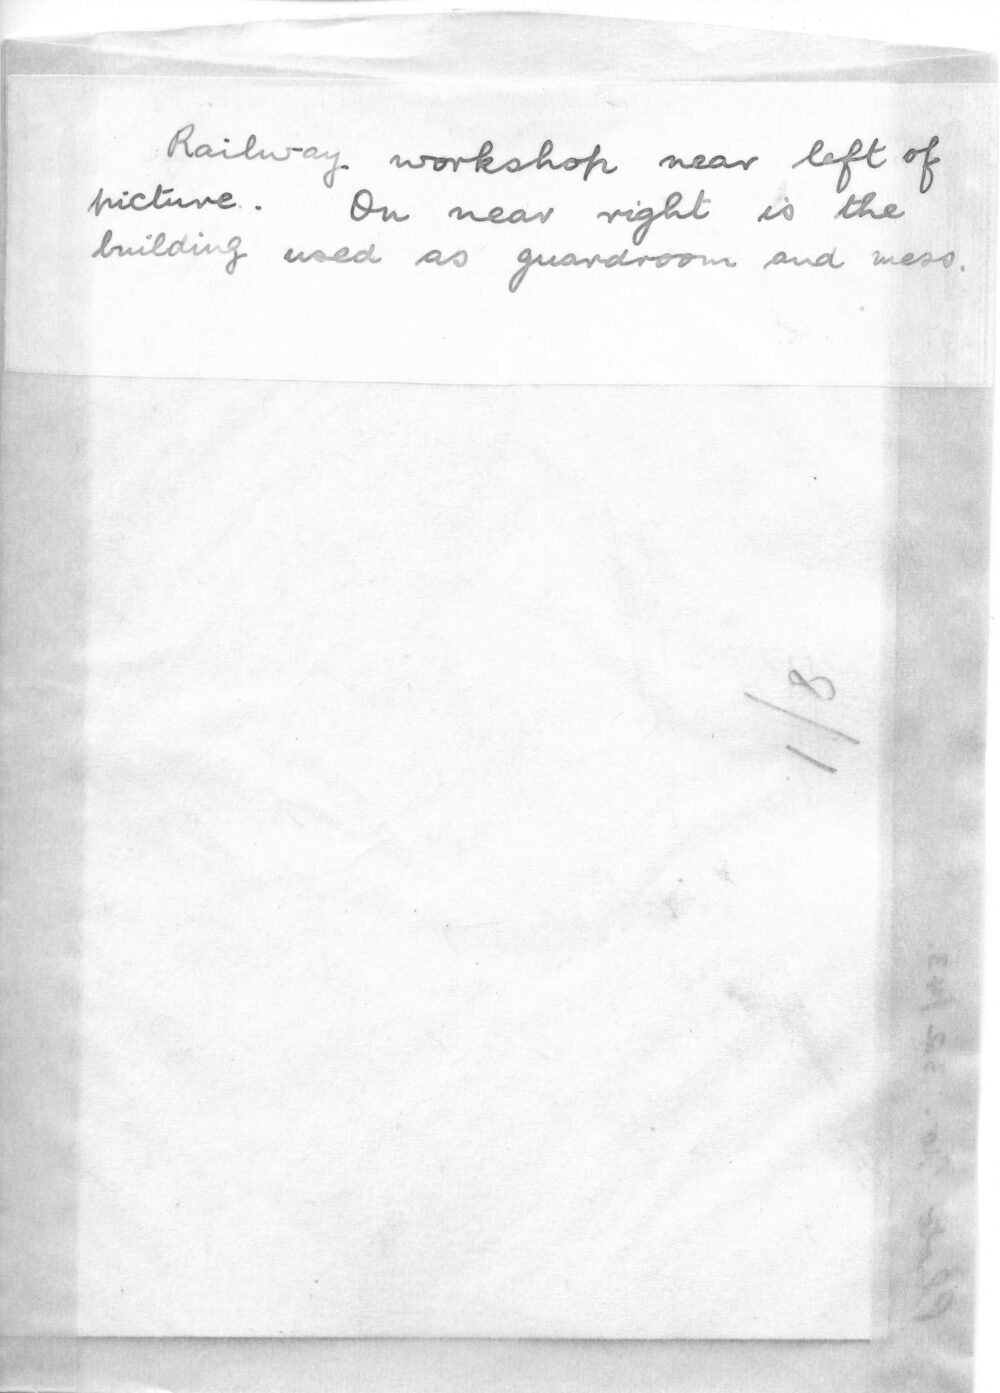 Railway workshop near left of
picture. On near right is the
building used as guardroom and mess.
1/8